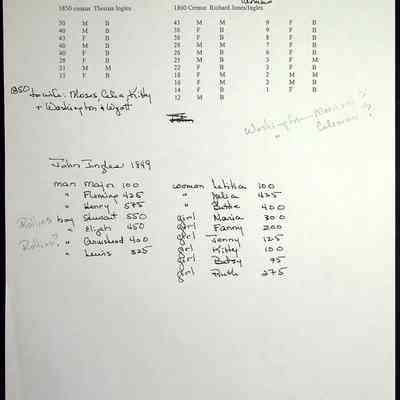 1850 census Thomas Ingles
50 M B
40 M B
43 F B
40 M B
40 F B
28 F B
21 M M
15 F B
1860 Census Richard Jones/Ingles
43 M M 9 F B
36 F B 9 F B
38 F B 8 F B
28 M M 7 F B
26 M B 6 F B
23 M B 3 F M
22 F B 3 F B
18 F M 2 M M
16 F M 2 M B
14 F B 1 F B
12 M B
1850 to wife: Moses, Celia, Kitty
+ Washington & Wyatt
John
Washington
Coleman ?
John Ingles 1849
man Major 100
" Fleming 425
" Henry 575
Robins boy Stewart 550
" Elijah 450
Robins? " 400
" Lewis 325
woman Letitia 100
" Julia 425
" 400
girl Maria 300
girl Fanny 200
girl Jenny 125
girl Kitty 100
girl Betsy 95
girl Ruth 275